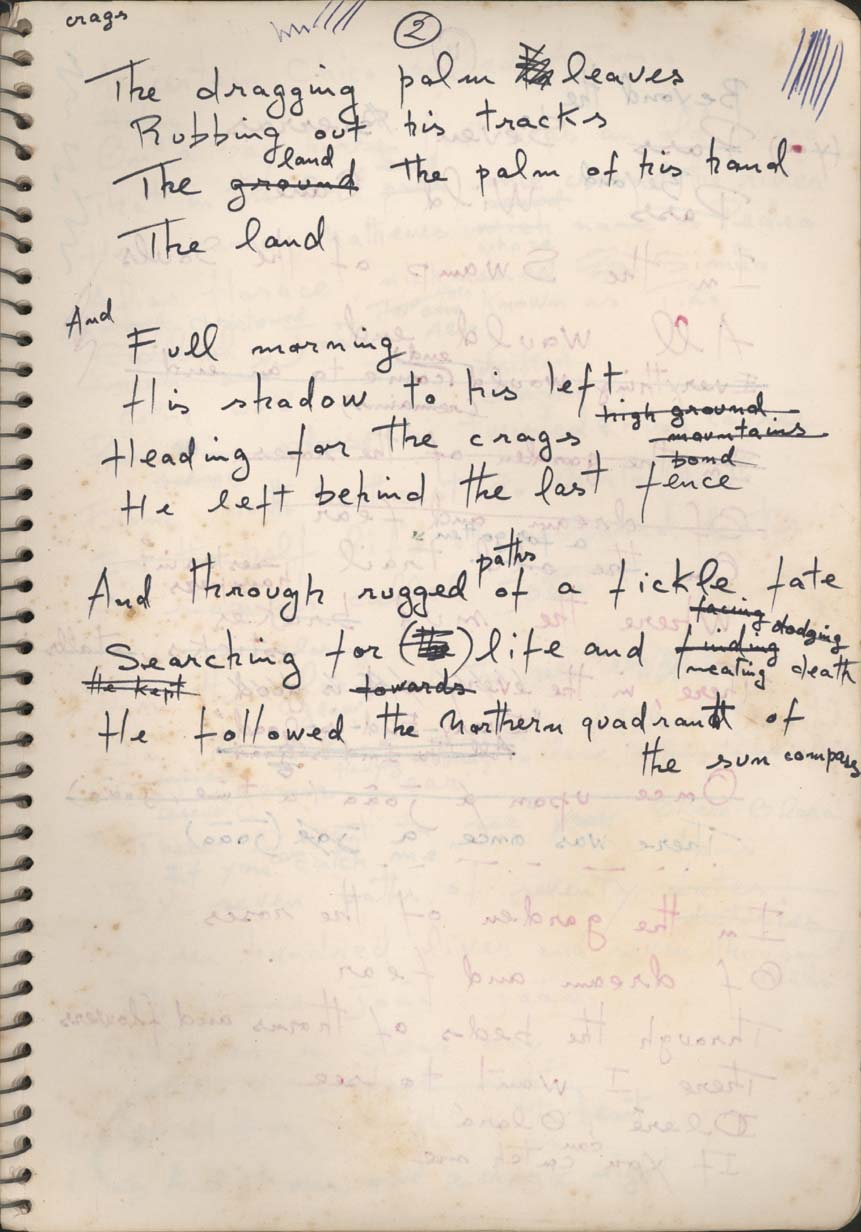 crags
2
The dragging palm leaves
Rubbing out his tracks
land
The ground the palm of his hand
The land
And
Full morning
His shadow to his left
high ground
Heading for the crags mountains
bond
He left behind the last fence
paths
And through rugged of a fickle fate
facing dodging
Searching for ( ) life and finding
meating death
He kept towards
He followed the Northern quadrant of
the sun compass